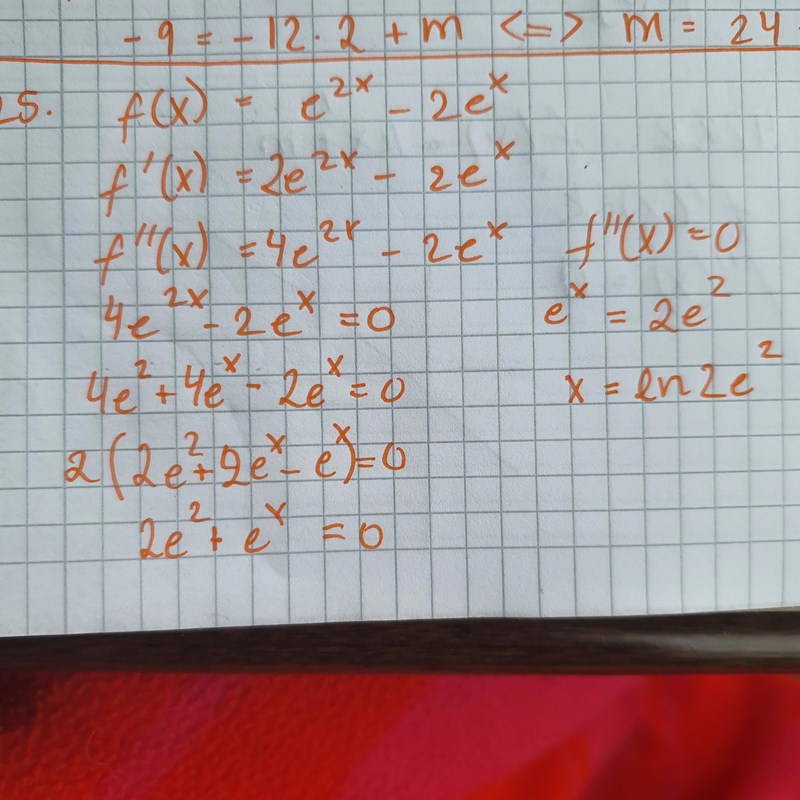 -9 = -12 · 2 + m <=> m = 24
25. f(x) = e^{2x} - 2e^x
f'(x) = 2e^{2x} - 2e^x
f''(x) = 4e^{2x} - 2e^x
f''(x) = 0
4e^{2x} - 2e^x = 0
e^x = 2e^2
4e^2 + 4e^x - 2e^x = 0
x = ln2e^2
2(2e^2 + 2e^x - e^x) = 0
2e^2 + e^x = 0